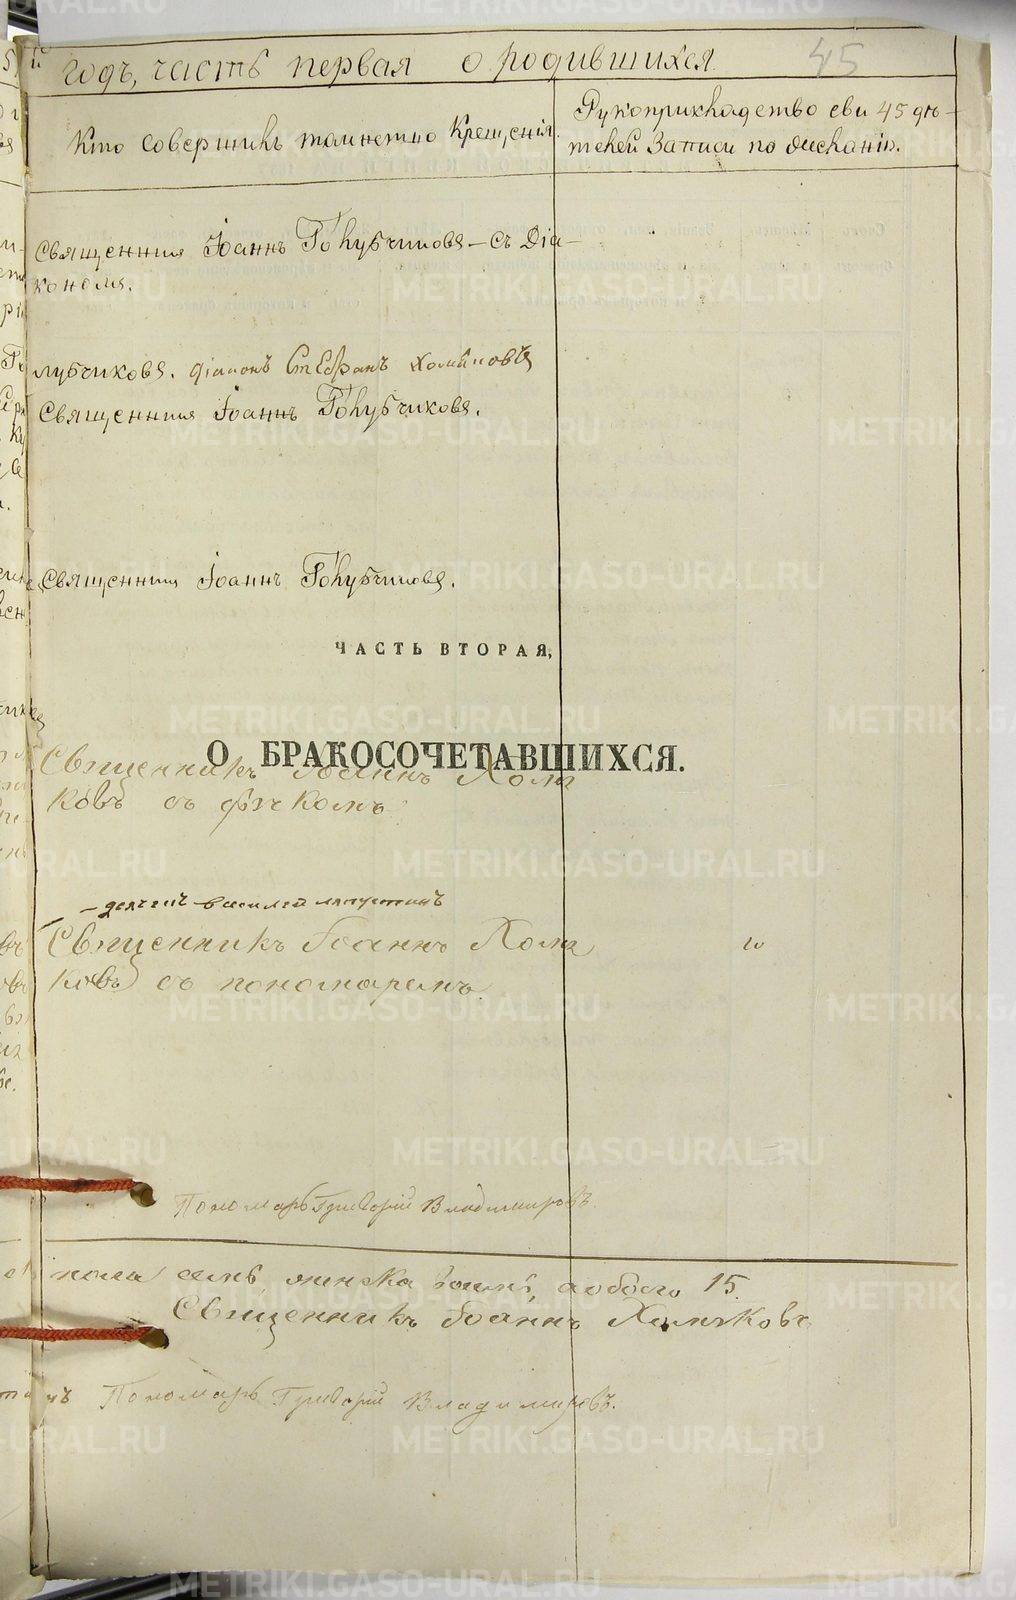 45
годъ, часть первая о родившихся.
Кто совершилъ таинство Крещенія.
Рукоприкладство сви 45 дѣ-
телей Записи по желанію.
Священник Іоаннъ Голубчиковъ – съ Діа-
кономъ.
лубчиковъ. Діаконъ Стефанъ Хомяковъ
Священник Іоаннъ Голубчиковъ.
Священник Іоаннъ Голубчиковъ.
ЧАСТЬ ВТОРАЯ,
О БРАКОСОЧЕТАВШИХСЯ.
Священникъ Іоаннъ Хомя
ковъ съ дьячкомъ
– дьячекъ Василей
Священникъ Іоаннъ Хомя
ковъ съ пономаремъ.
Пономарь Григорій Владимировъ
пола семь, женска восемь, а обоего 15.
Священникъ Іоаннъ Хомяковъ
Пономарь Григорій Владимировъ.
METRIKI.GASO-URAL.RU